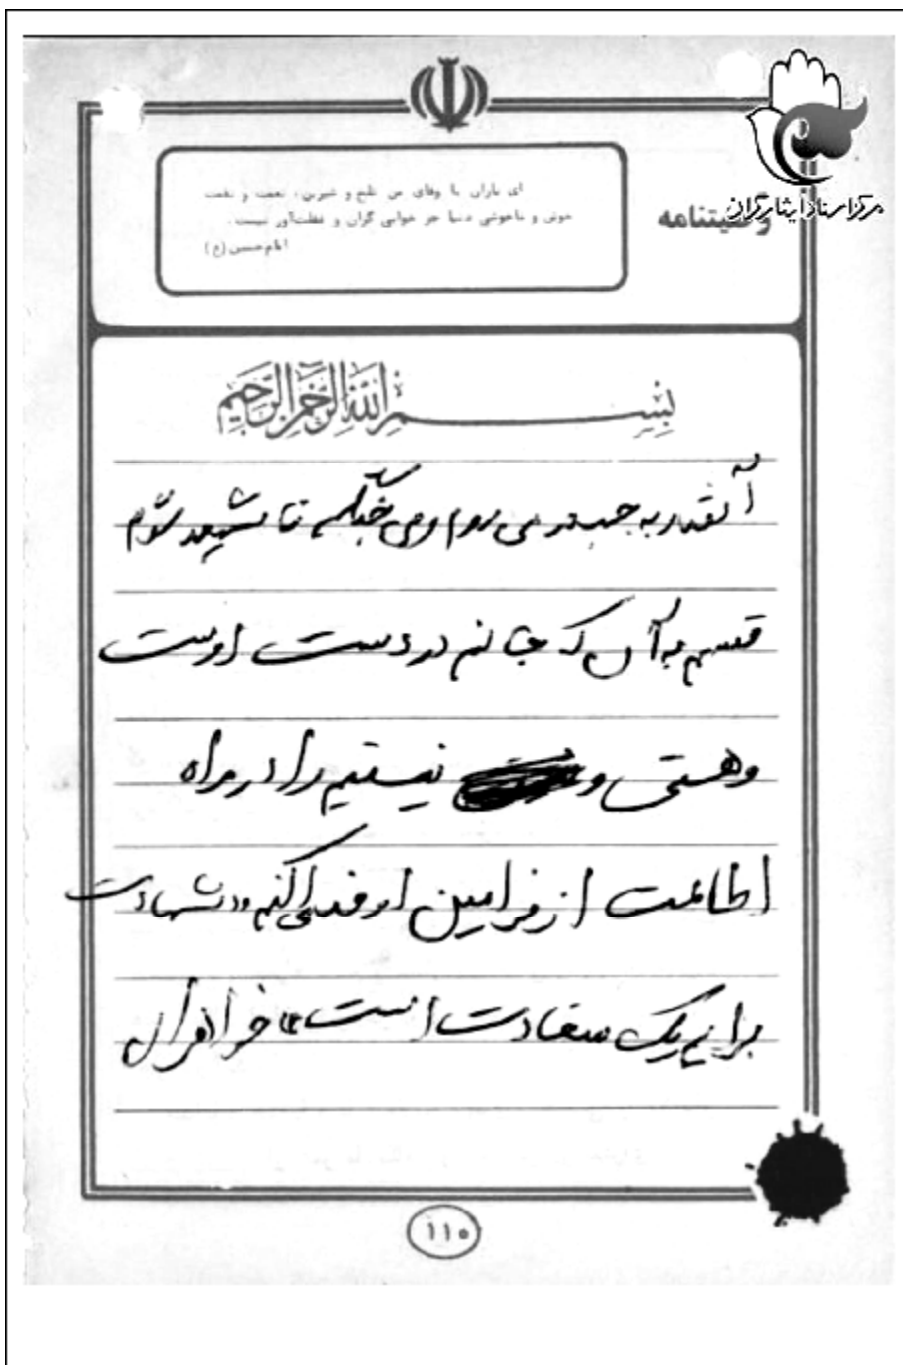 مرکز اسناد ایثارگران
وصیتنامه
ای یاران با وفای من تلخ و شیرین، نعمت و نقمت
خوش و ناخوشی دنیا جز خوابی گران و غفلت‌آور نیست.
امام حسین (ع)
بِسْمِ اللهِ الرَّحْمنِ الرَّحیم
آنقدر به جبهه می روم و می جنگم تا شهید شوم
قسم به آن که جانم در دست اوست
و هستی و نیستیم را در راه
اطاعت از فرامین او فدا می کنم و شهادت
برایم یک سعادت است خواهران
۱۱۰